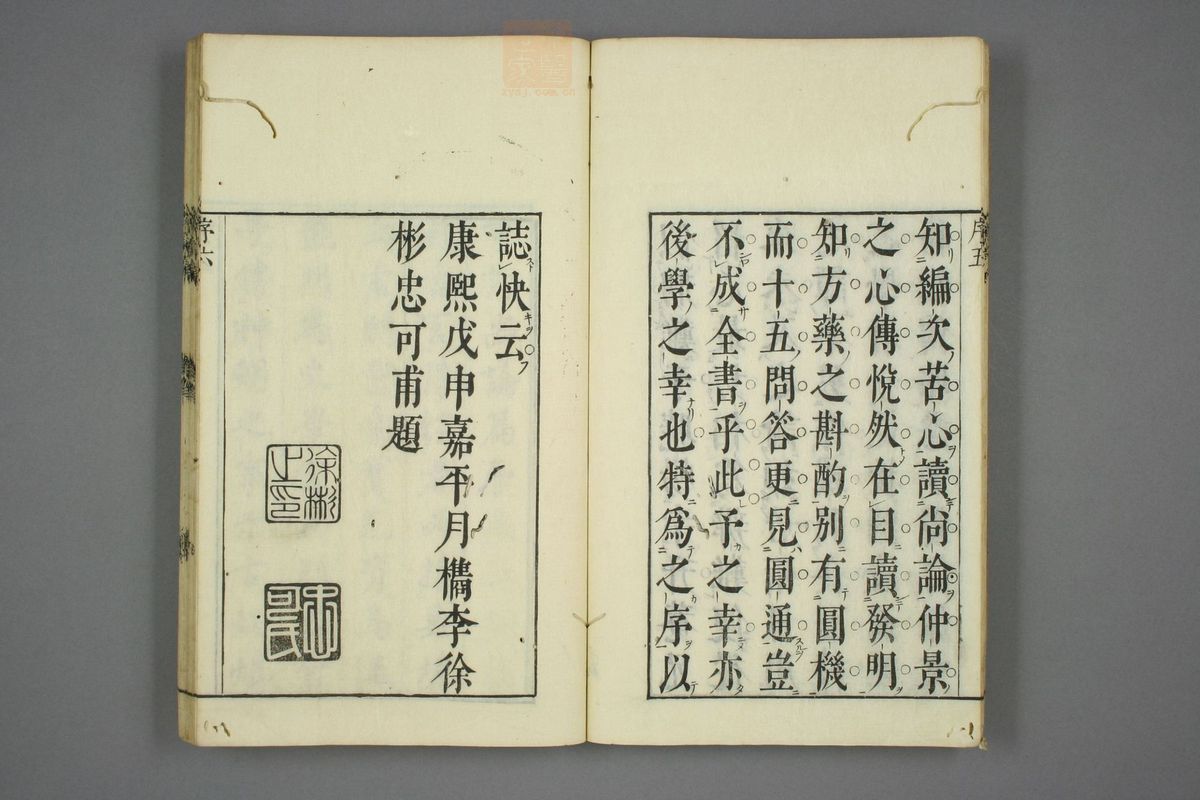 序五
知編次苦心讀尙論仲景
之心傳悅然在目讀發明
知方藥之斟酌別有圓機
而十五問答更見圓通豈
不成全書乎此予之幸亦
後學之幸也特爲之序以
誌快云
康熙戊申嘉平月檇李徐
彬忠可甫題
徐彬之印
忠可氏
序六
zysj.com.cn